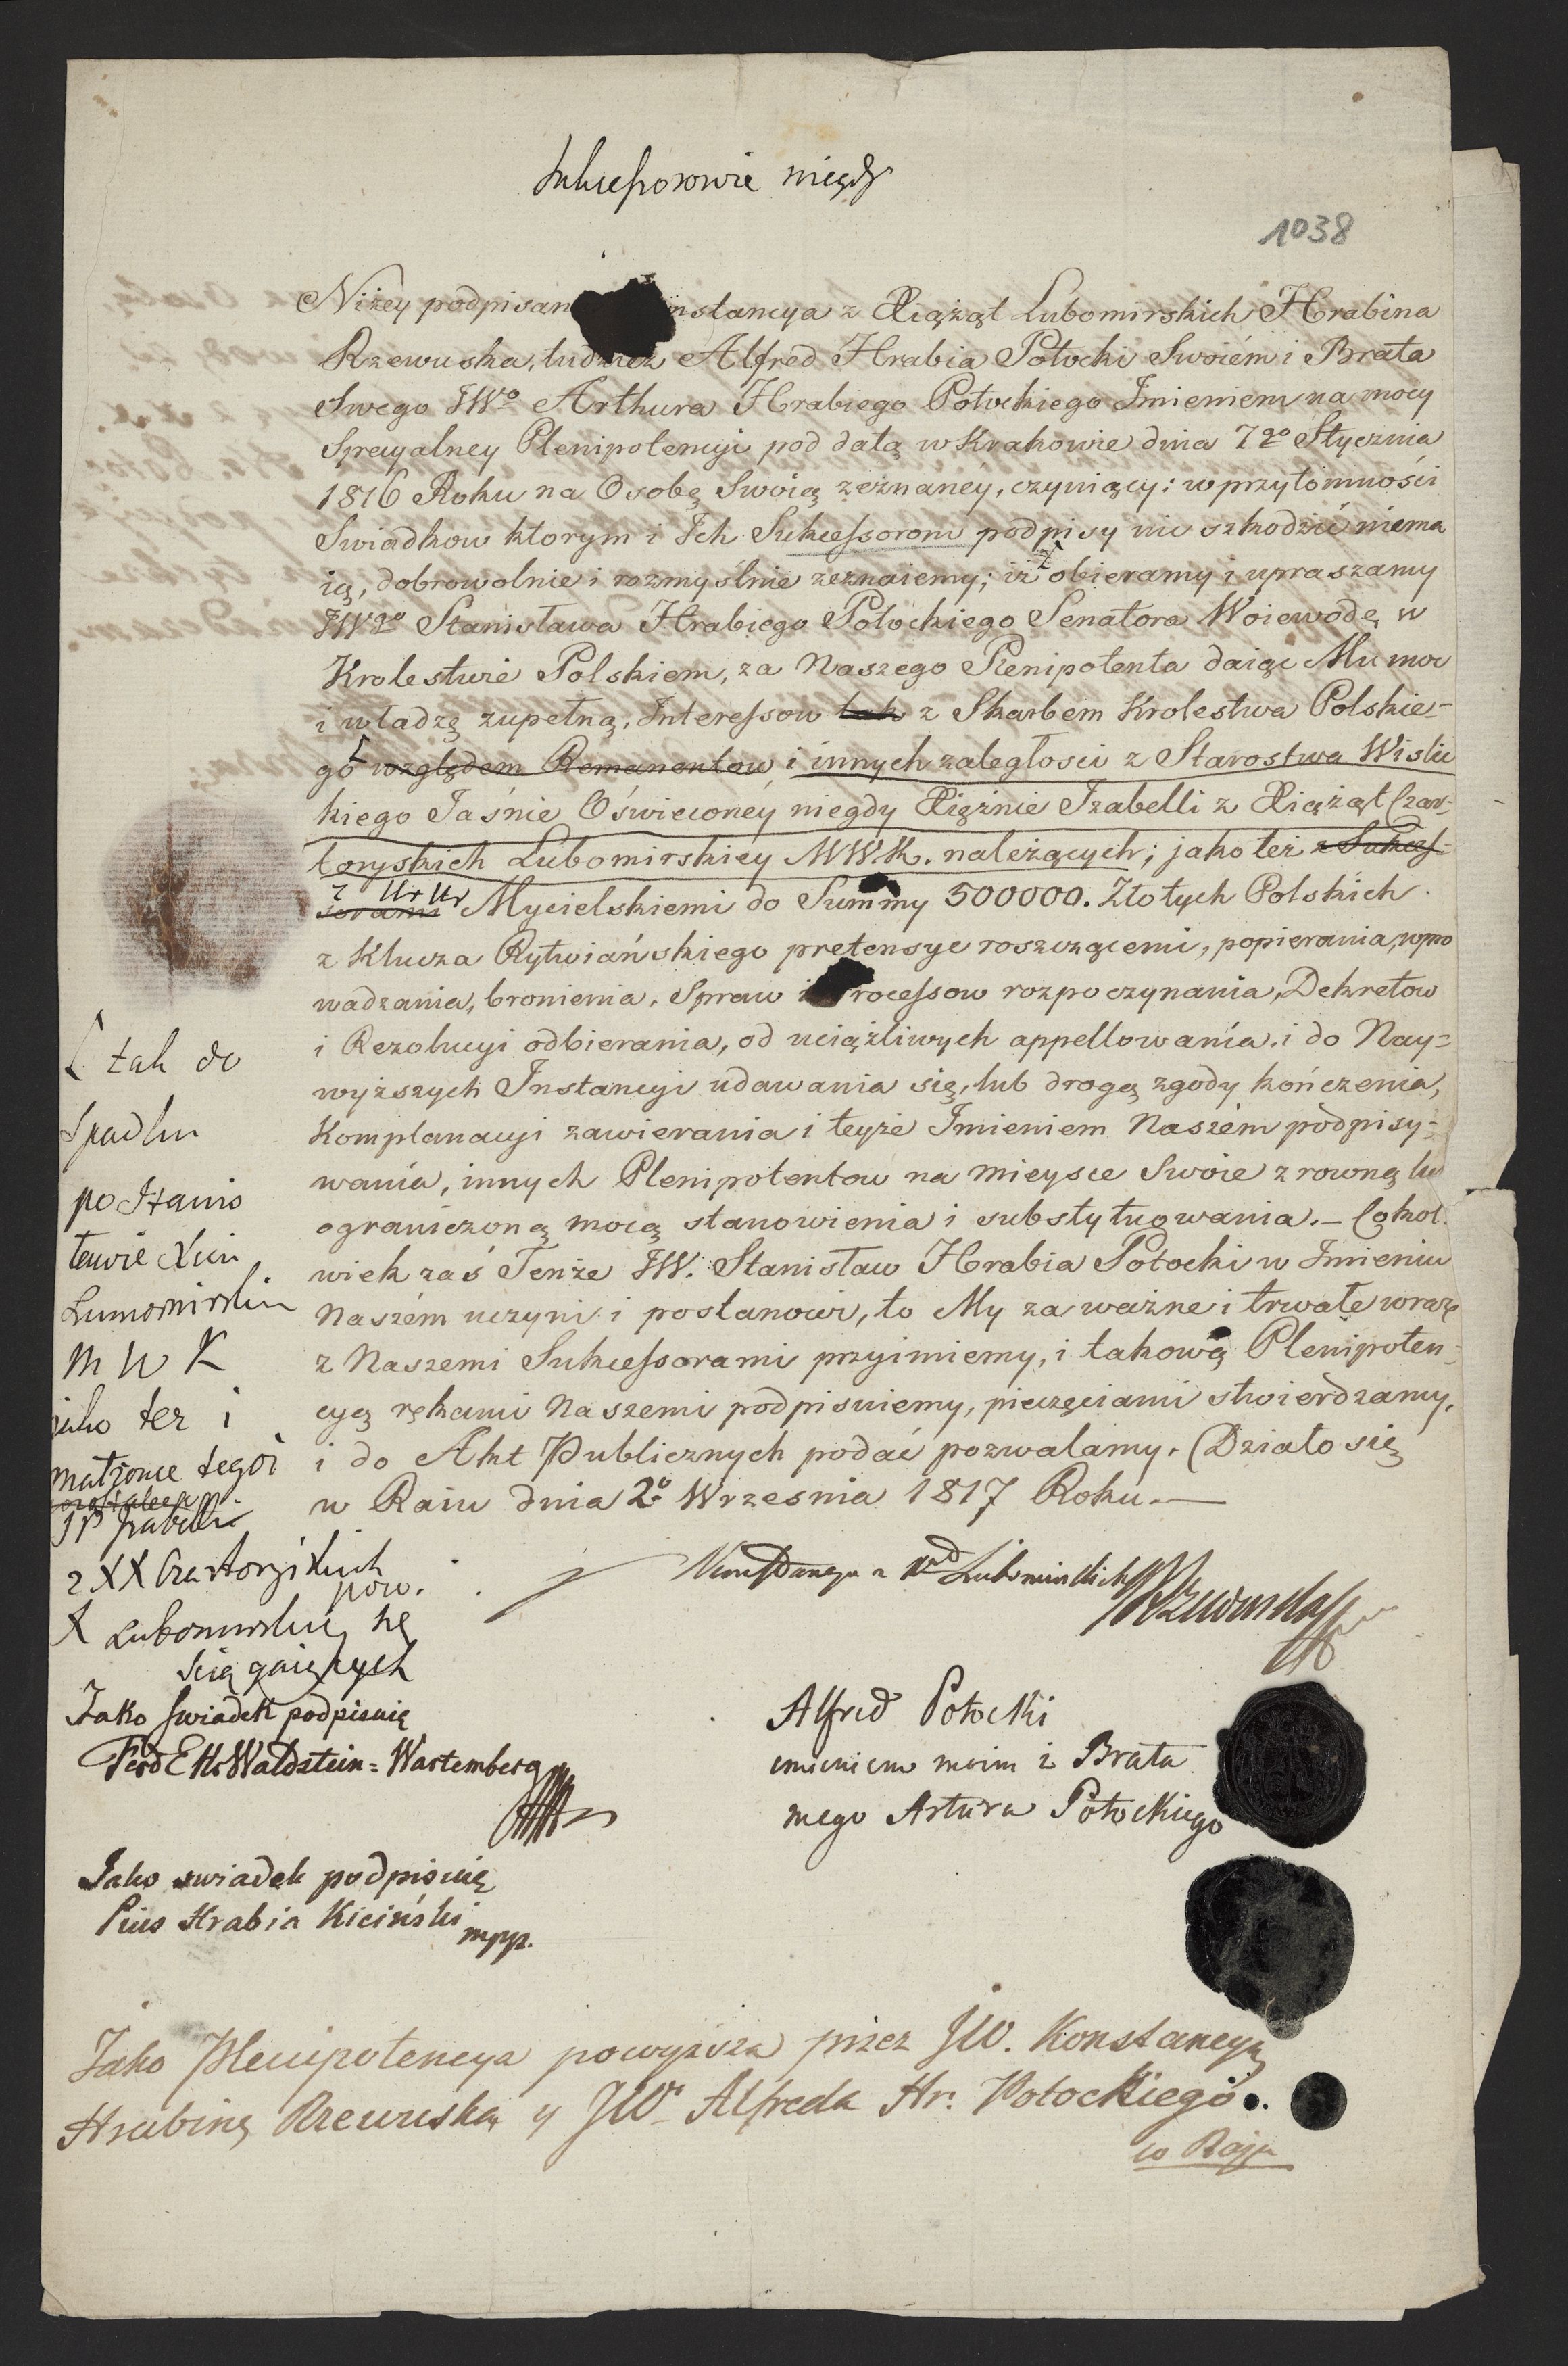 Sukcessorowie niegdy
1038
Niżey podpisan nstancya z Xiążąt Lubomirskich Hrabina
Rzewuska, tudzież Alfred Hrabia Potocki Swoiém i Brata
Swego JWo Arthura Hrabiego Potockiego Imieniem na mocy
Specyalney Plenipotencyi pod datą w Krakowie dnia 7go Stycznia
1816 Roku na Osobę Swoią zeznanéy, czyniący: w przytomności
Swiadkow ktorym i Ich Sukcessorom podpisy nic szkodzić niema
ią, dobrowolnie i rozmyslnie zeznaiemy; iż obieramy i upraszamy
JWgo Stanisława Hrabiego Potockiego Senatora Woiewodę w
Krolestwie Polskiem, za Naszego Plenipotenta daiąc Mu moc
i władzę zupełną, Interessow tak z Skarbem Krolestwa Polskie-
go względem Remanentow i innych zaległosci z Starostwa Wislic
kiego Jaśnie Oświeconéy niegdy Xiężnie Izabelli z Xiążąt Czar-
toryskich Lubomirskiey MWK. należących; jako też z Sukces-
sorami z Ur Ur Mycielskiemi do Summy 500000. Złotych Polskich
z Klucza Rytwiańskiego pretensye roszczącemi, popierania, wpro
wadzania, bronienia, Spraw i rocessow rozpoczynania, Dekretow
i Rezolucyi odbierania, od uciążliwych appellowania i do Nay=
wyższych Instancyi udawania się, lub drogą zgody kończenia,
Komplanacyi zawierania i teyże Imieniem Naszém podpisy=
wania, innych Plenipotentow na mieysce Swoie z rowną lub
ograniczoną mocą stanowienia i substytuowania.– Cokol.
wiek zaś Tenże JW. Stanisław Hrabia Potocki w Imieniu
Naszém uczyni i postanowi, to My za ważne i trwałe wraz
z Naszemi Sukcessorami przyimiemy, i takową Plenipoten=
cyą rękami Naszemi podpisuiemy, pieczęciami stwierdzamy,
i do Akt Publicznych podać pozwalamy. Działo się
w Raiu dnia 2o Wrzesnia 1817 Roku.—
tak do
Spadku
po Stanis
ławie Xciu
Lumomirskim
M W K
jako też i
małżonce tegoż
JO Izabelli
z XX Czartoryskich
pow.
X Lubomirskiey
sciągaiących
Konstancya z Lubomirskich Rzewuska
Alfred Potocki
imieniem moim i Brata
mego Artura Potockiego
Jako swiadek podpisuię
Ferd E Hr Waldstein=Wartemberg
Jako swiadek podpisuię
Pius Hrabia Kiciński
mpp.
Jako Plenipotencya powyższa przez JW. Konstancyą
Hrabinę Rzewuską y JWo Alfreda Hr: Potockiego
w Raju